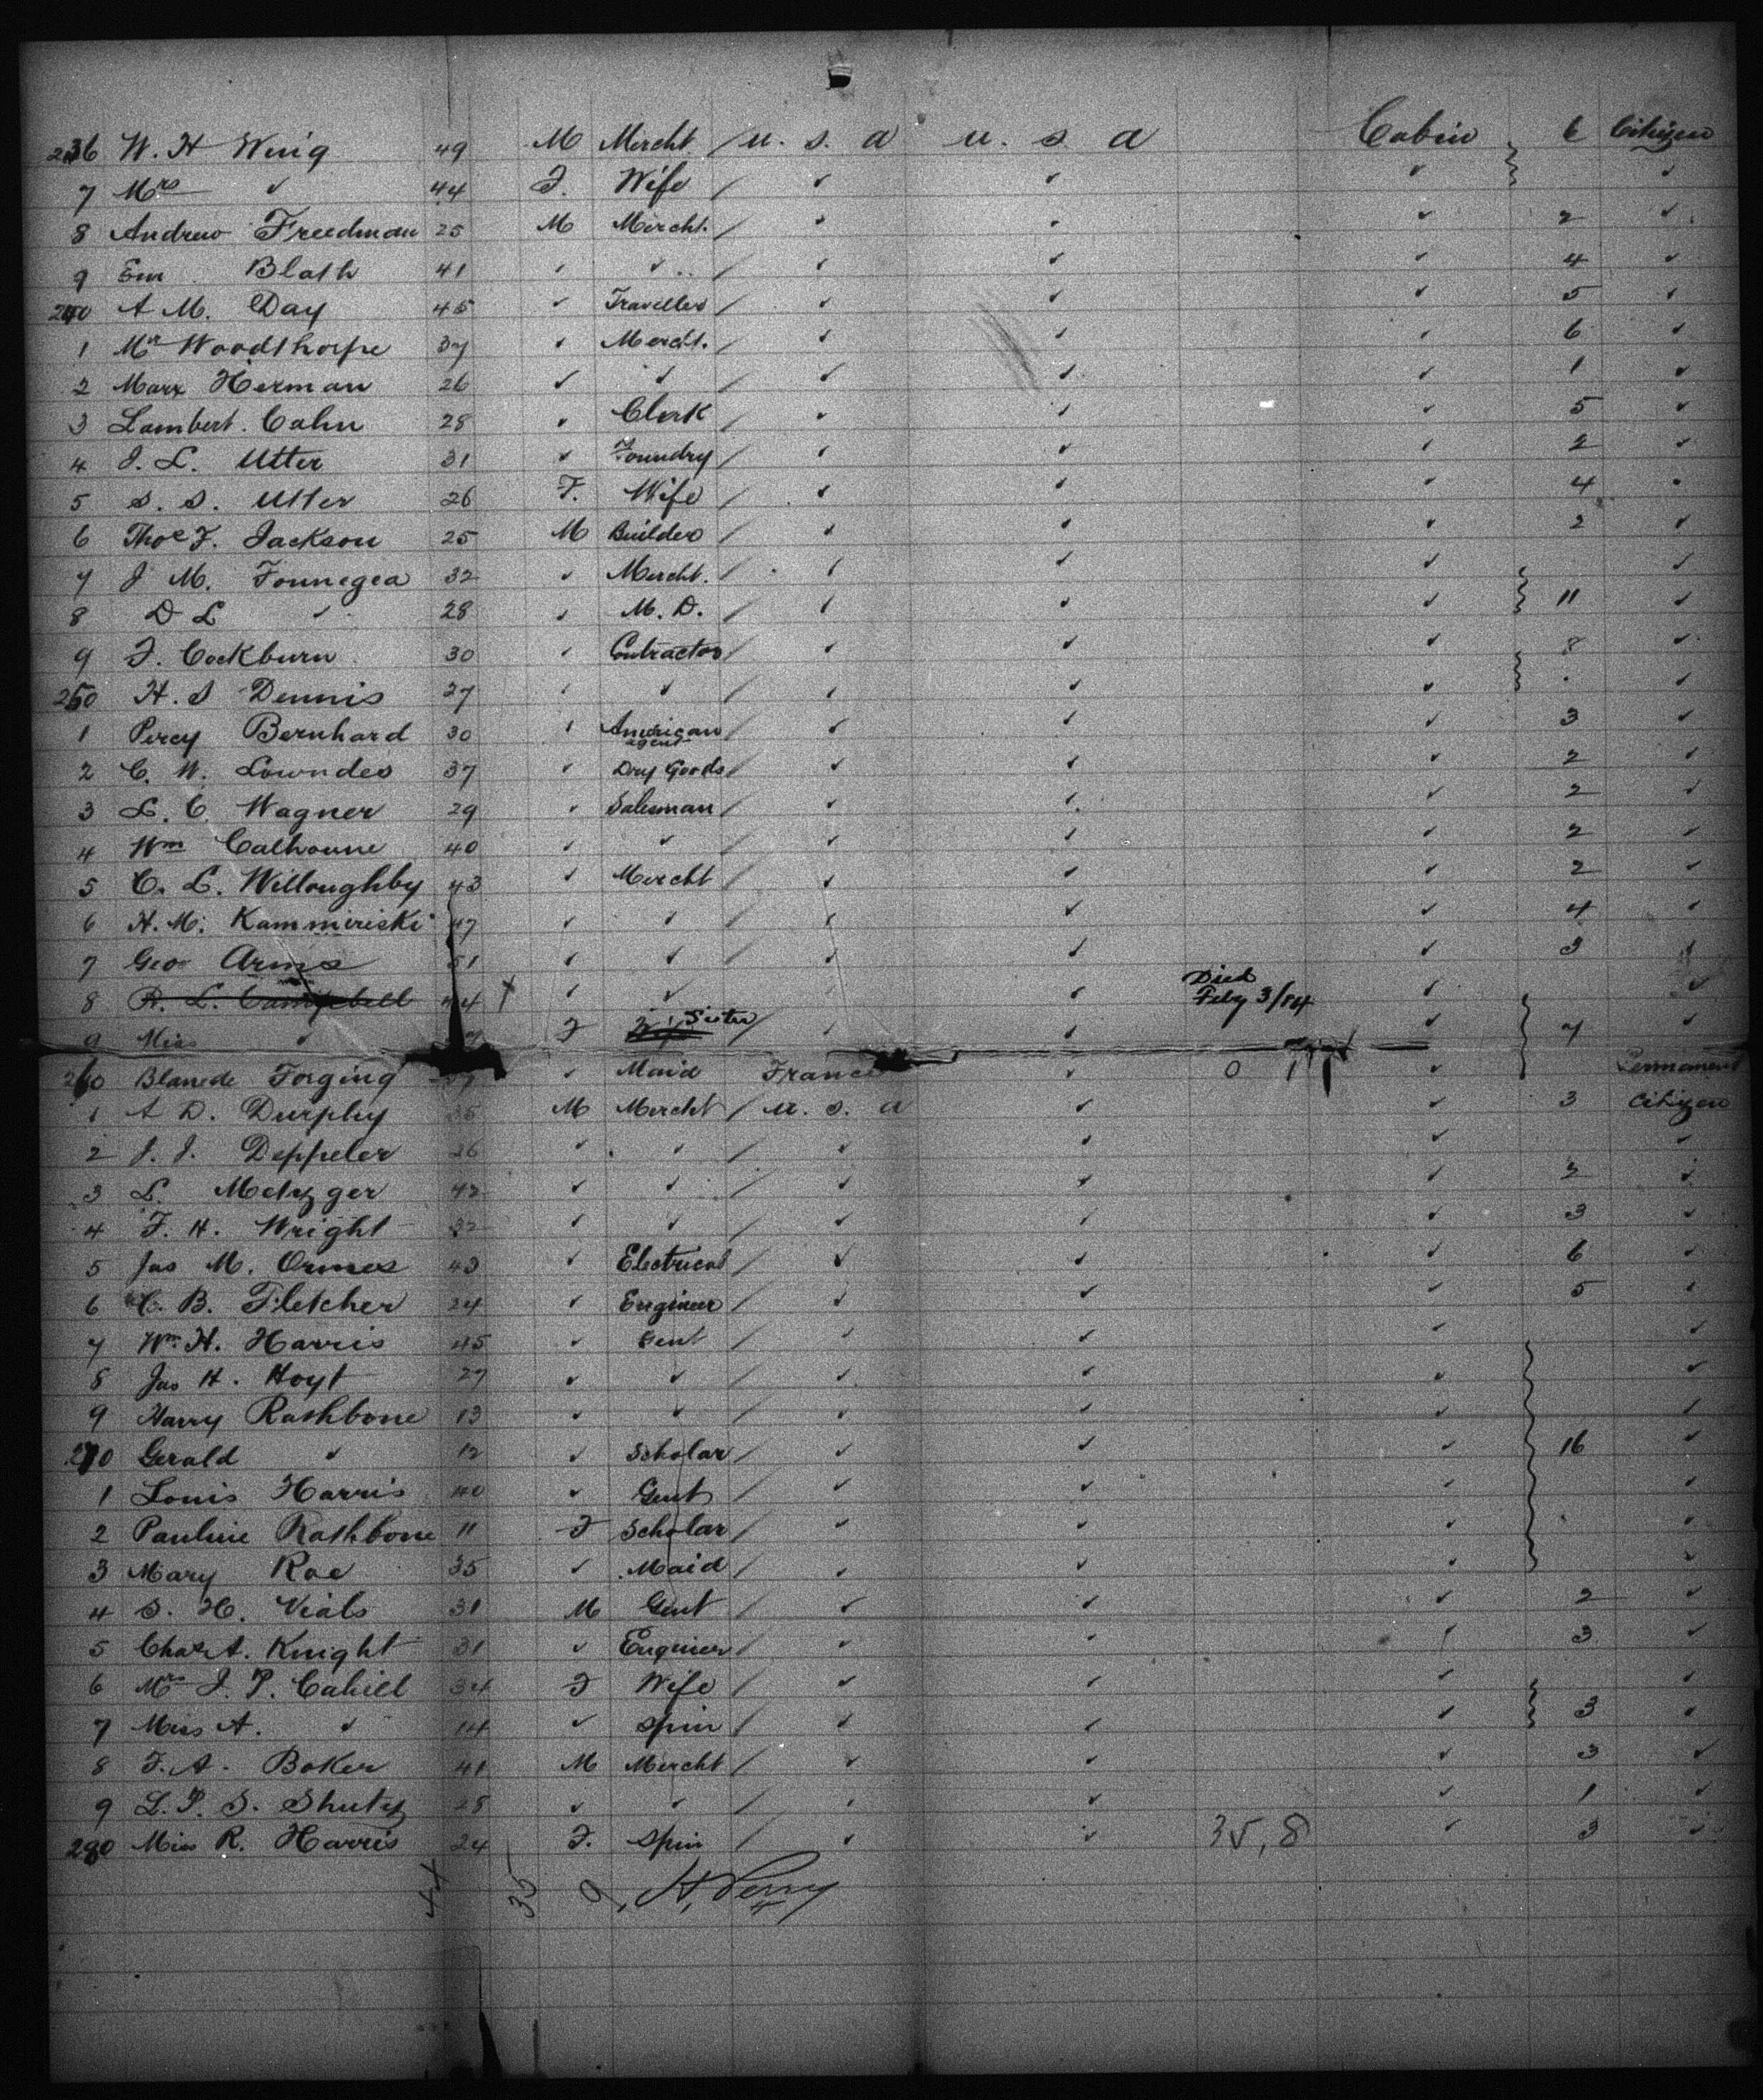 236 W. H Wing 49 M Mercht / U. S. A U. S. A Cabin 6 Citizen
7 Mrs ✓ 44 F. Wife / ✓ ✓ ✓ ✓
8 Andrew Freedman 25 M Mercht. / ✓ ✓ ✓ 2 ✓
9 Em Blath 41 ✓ ✓ / ✓ ✓ ✓ 4 ✓
240 A M. Day 45 ✓ Traveller / ✓ ✓ ✓ 5 ✓
1 Mr Woodthorpe 37 ✓ Mercht. ✓ ✓ ✓ 6 ✓
2 Marx Herman 26 ✓ ✓ / ✓ ✓ ✓ 1 ✓
3 Lambert. Cahn 28 ✓ Clerk / ✓ ✓ ✓ 5 ✓
4 J. L. Utter 31 ✓ Foundry / ✓ ✓ ✓ 2 ✓
5 S. S. Utter 26 F. Wife / ✓ ✓ ✓ 4 ✓
6 Thos F. Jackson 25 M Builder / ✓ ✓ ✓ 2 ✓
7 J M. 32 ✓ Mercht. / ✓ ✓ ✓ ✓
8 D L ✓ 28 ✓ M. D. / ✓ ✓ ✓ 11 ✓
9 F. Cockburn 30 ✓ Contractor / ✓ ✓ ✓ 8 ✓
250 H. S Dennis 27 ✓ ✓ / ✓ ✓ ✓ ✓
1 Percy Bernhard 30 ✓ American agent / ✓ ✓ ✓ 3 ✓
2 C. W. Lowndes 37 ✓ Dry Goods / ✓ ✓ ✓ 2 ✓
3 L. C Wagner 29 ✓ Salesman / ✓ ✓ ✓ 2 ✓
4 Wm Calhoune 40 ✓ ✓ / ✓ ✓ ✓ 2 ✓
5 C. L. Willoughby 43 ✓ Mercht / ✓ ✓ ✓ 2 ✓
6 H. M. Kammireski 47 ✓ ✓ / ✓ ✓ ✓ 4 ✓
7 Geo Arms 51 ✓ ✓ / ✓ ✓ ✓ 3 ✓
8 R. L. Campbell 44 ✓ ✓ ✓ Died Feby 3/84 ✓ ✓
9 Miss ✓ F Sister / ✓ ✓ ✓ 7 ✓
260 Forging ✓ Maid France ✓ 0 ✓ Permanent
1 A D. Durphy 35 M Mercht / U. S. A ✓ ✓ 3 Citizen
2 J. J. Deppeler 26 ✓ ✓ / ✓ ✓ ✓ ✓
3 L. Metzger 42 ✓ ✓ / ✓ ✓ ✓ 2 ✓
4 F. H. Wright 32 ✓ ✓ / ✓ ✓ ✓ 3 ✓
5 Jas M. Ormes 43 ✓ Electrical / ✓ ✓ ✓ 6 ✓
6 C. B. Fletcher 24 ✓ Engineer / ✓ ✓ ✓ 5 ✓
7 Wm H. Harris 45 ✓ Gent / ✓ ✓ ✓ ✓
8 Jas H. Hoyt 27 ✓ ✓ / ✓ ✓ ✓ ✓
9 Harry Rathbone 13 ✓ ✓ / ✓ ✓ ✓ ✓
270 Gerald ✓ 12 ✓ Scholar / ✓ ✓ ✓ 16 ✓
1 Louis Harris 40 ✓ Gent / ✓ ✓ ✓ ✓
2 Pauline Rathbone 11 F Scholar / ✓ ✓ ✓ ✓
3 Mary Roe 35 ✓ Maid / ✓ ✓ ✓ ✓
4 S. H. Vials 31 M Gent / ✓ ✓ ✓ 2 ✓
5 Chas A. Knight 31 ✓ Engineer / ✓ ✓ ✓ 3 ✓
6 Mrs J. P. Cahill 34 F Wife / ✓ ✓ ✓ ✓
7 Miss A. ✓ 14 ✓ Spin / ✓ ✓ ✓ 3 ✓
8 F. A. Boker 41 M Mercht / ✓ ✓ ✓ 3 ✓
9 L. P. S. Shutz 28 ✓ ✓ / ✓ ✓ ✓ 1 ✓
280 Miss R. Harris 24 F. Spin / ✓ ✓ 35,8 ✓ 3 ✓
44 35 9 H, Perry